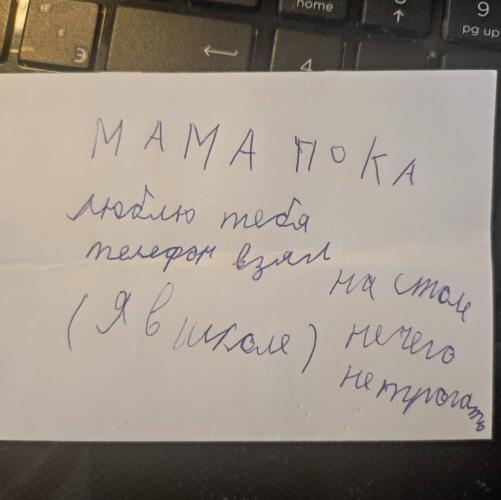 home
9
pg up
э
4
МАМА ПОКА
люблю тебя
телефон взял
(Я в школе)
на столе
нечего
не трогать